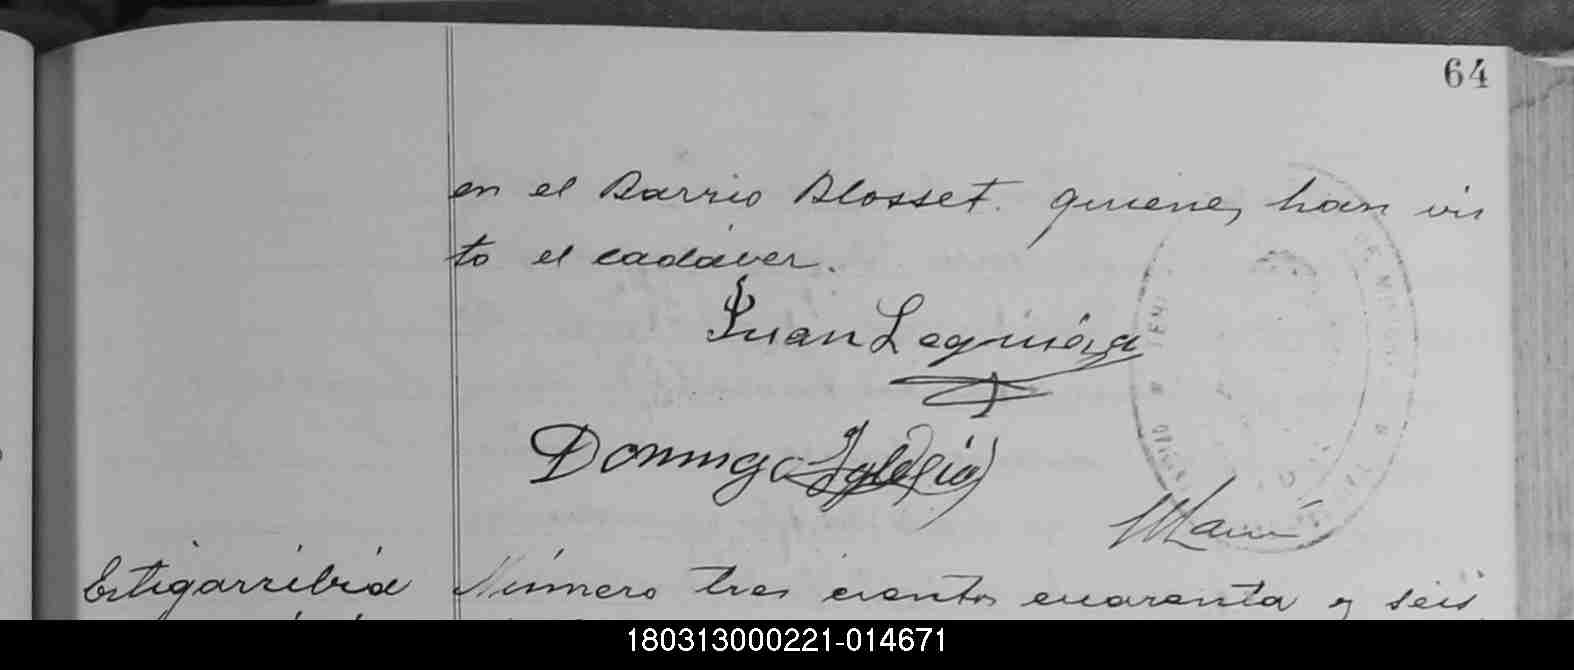 64
en el Barrio Blosset. quienes han vis
to el cadáver.
Juan Leguiza
Domingo Iglesias
Estigarribia Número tres cientos cuarenta y seis
180313000221-014671